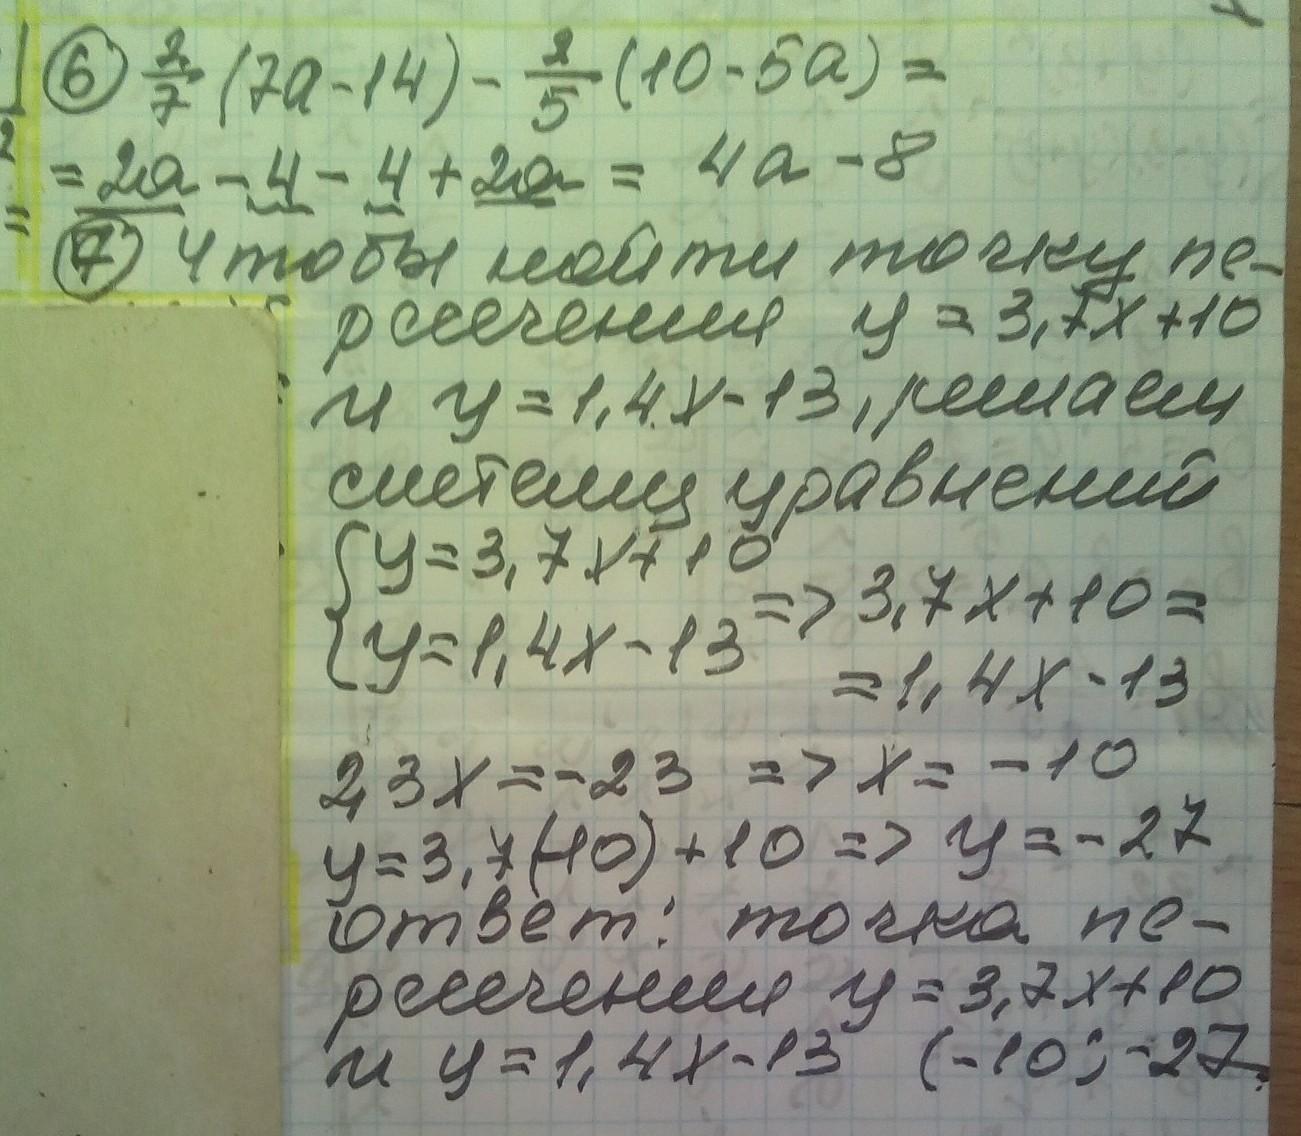 6) 2/7 (7a-14) - 2/5 (10-5a) =
= 2a - 4 - 4 + 2a = 4a - 8
7) Чтобы найти точку пе-
рсечения y = 3,7x+10
и y = 1,4x-13, решаем
систему уравнений
{ y = 3,7x+10
=> 3,7x+10 =
{ y = 1,4x-13
= 1,4x-13
2,3x = -23 => x = -10
y = 3,7(-10)+10 => y = -27
ответ: точка пе-
рсечения y = 3,7x+10
и y = 1,4x-13 (-10; -27